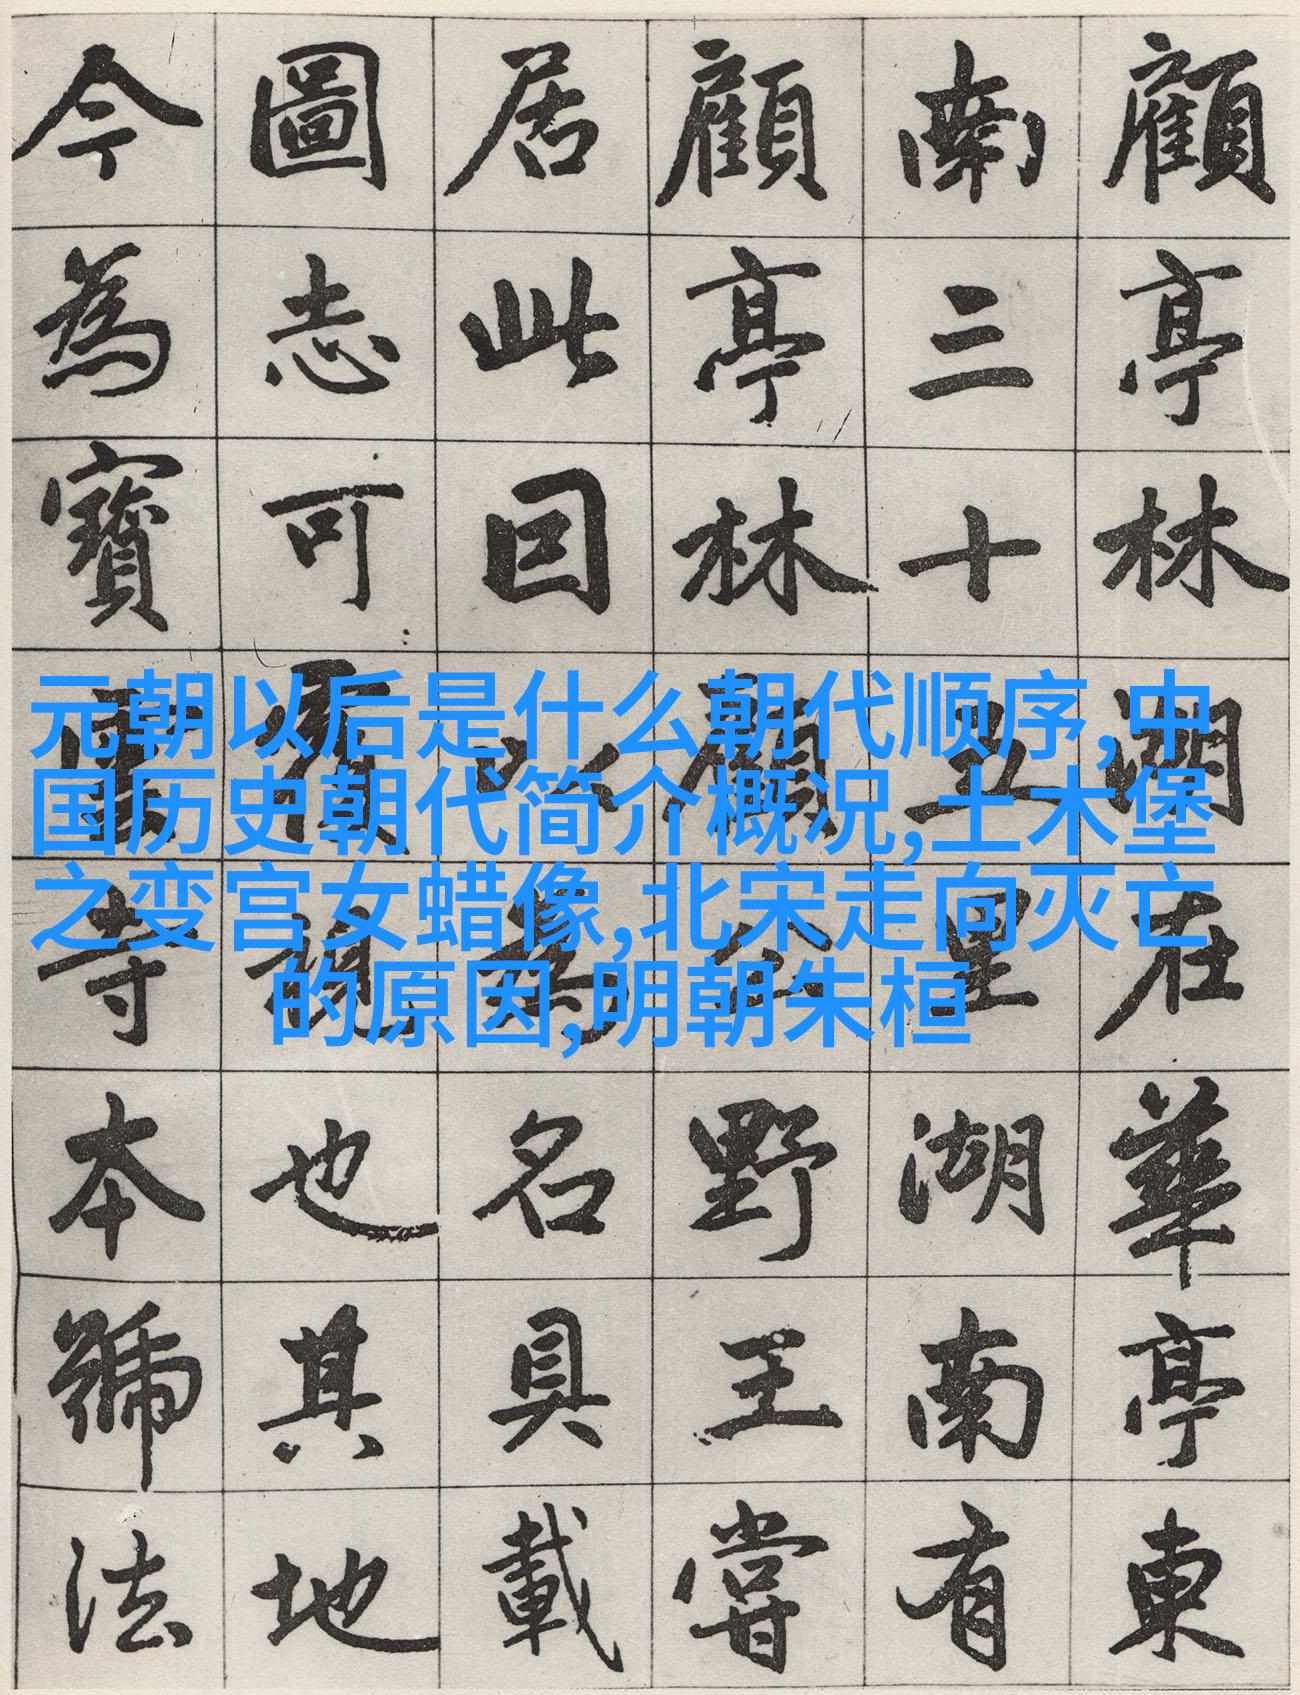 顧亭林湖在華亭東
南三十五里湖南有
顧亭林顧公野王嘗
居此因以為名具載
圖志可覆視也其地
今為寶雲寺本號法
元朝以后是什么朝代顺序,中
国历史朝代简介概况,土木堡
之变宫女蜡像,北宋走向灭亡
的原因,明朝朱桓